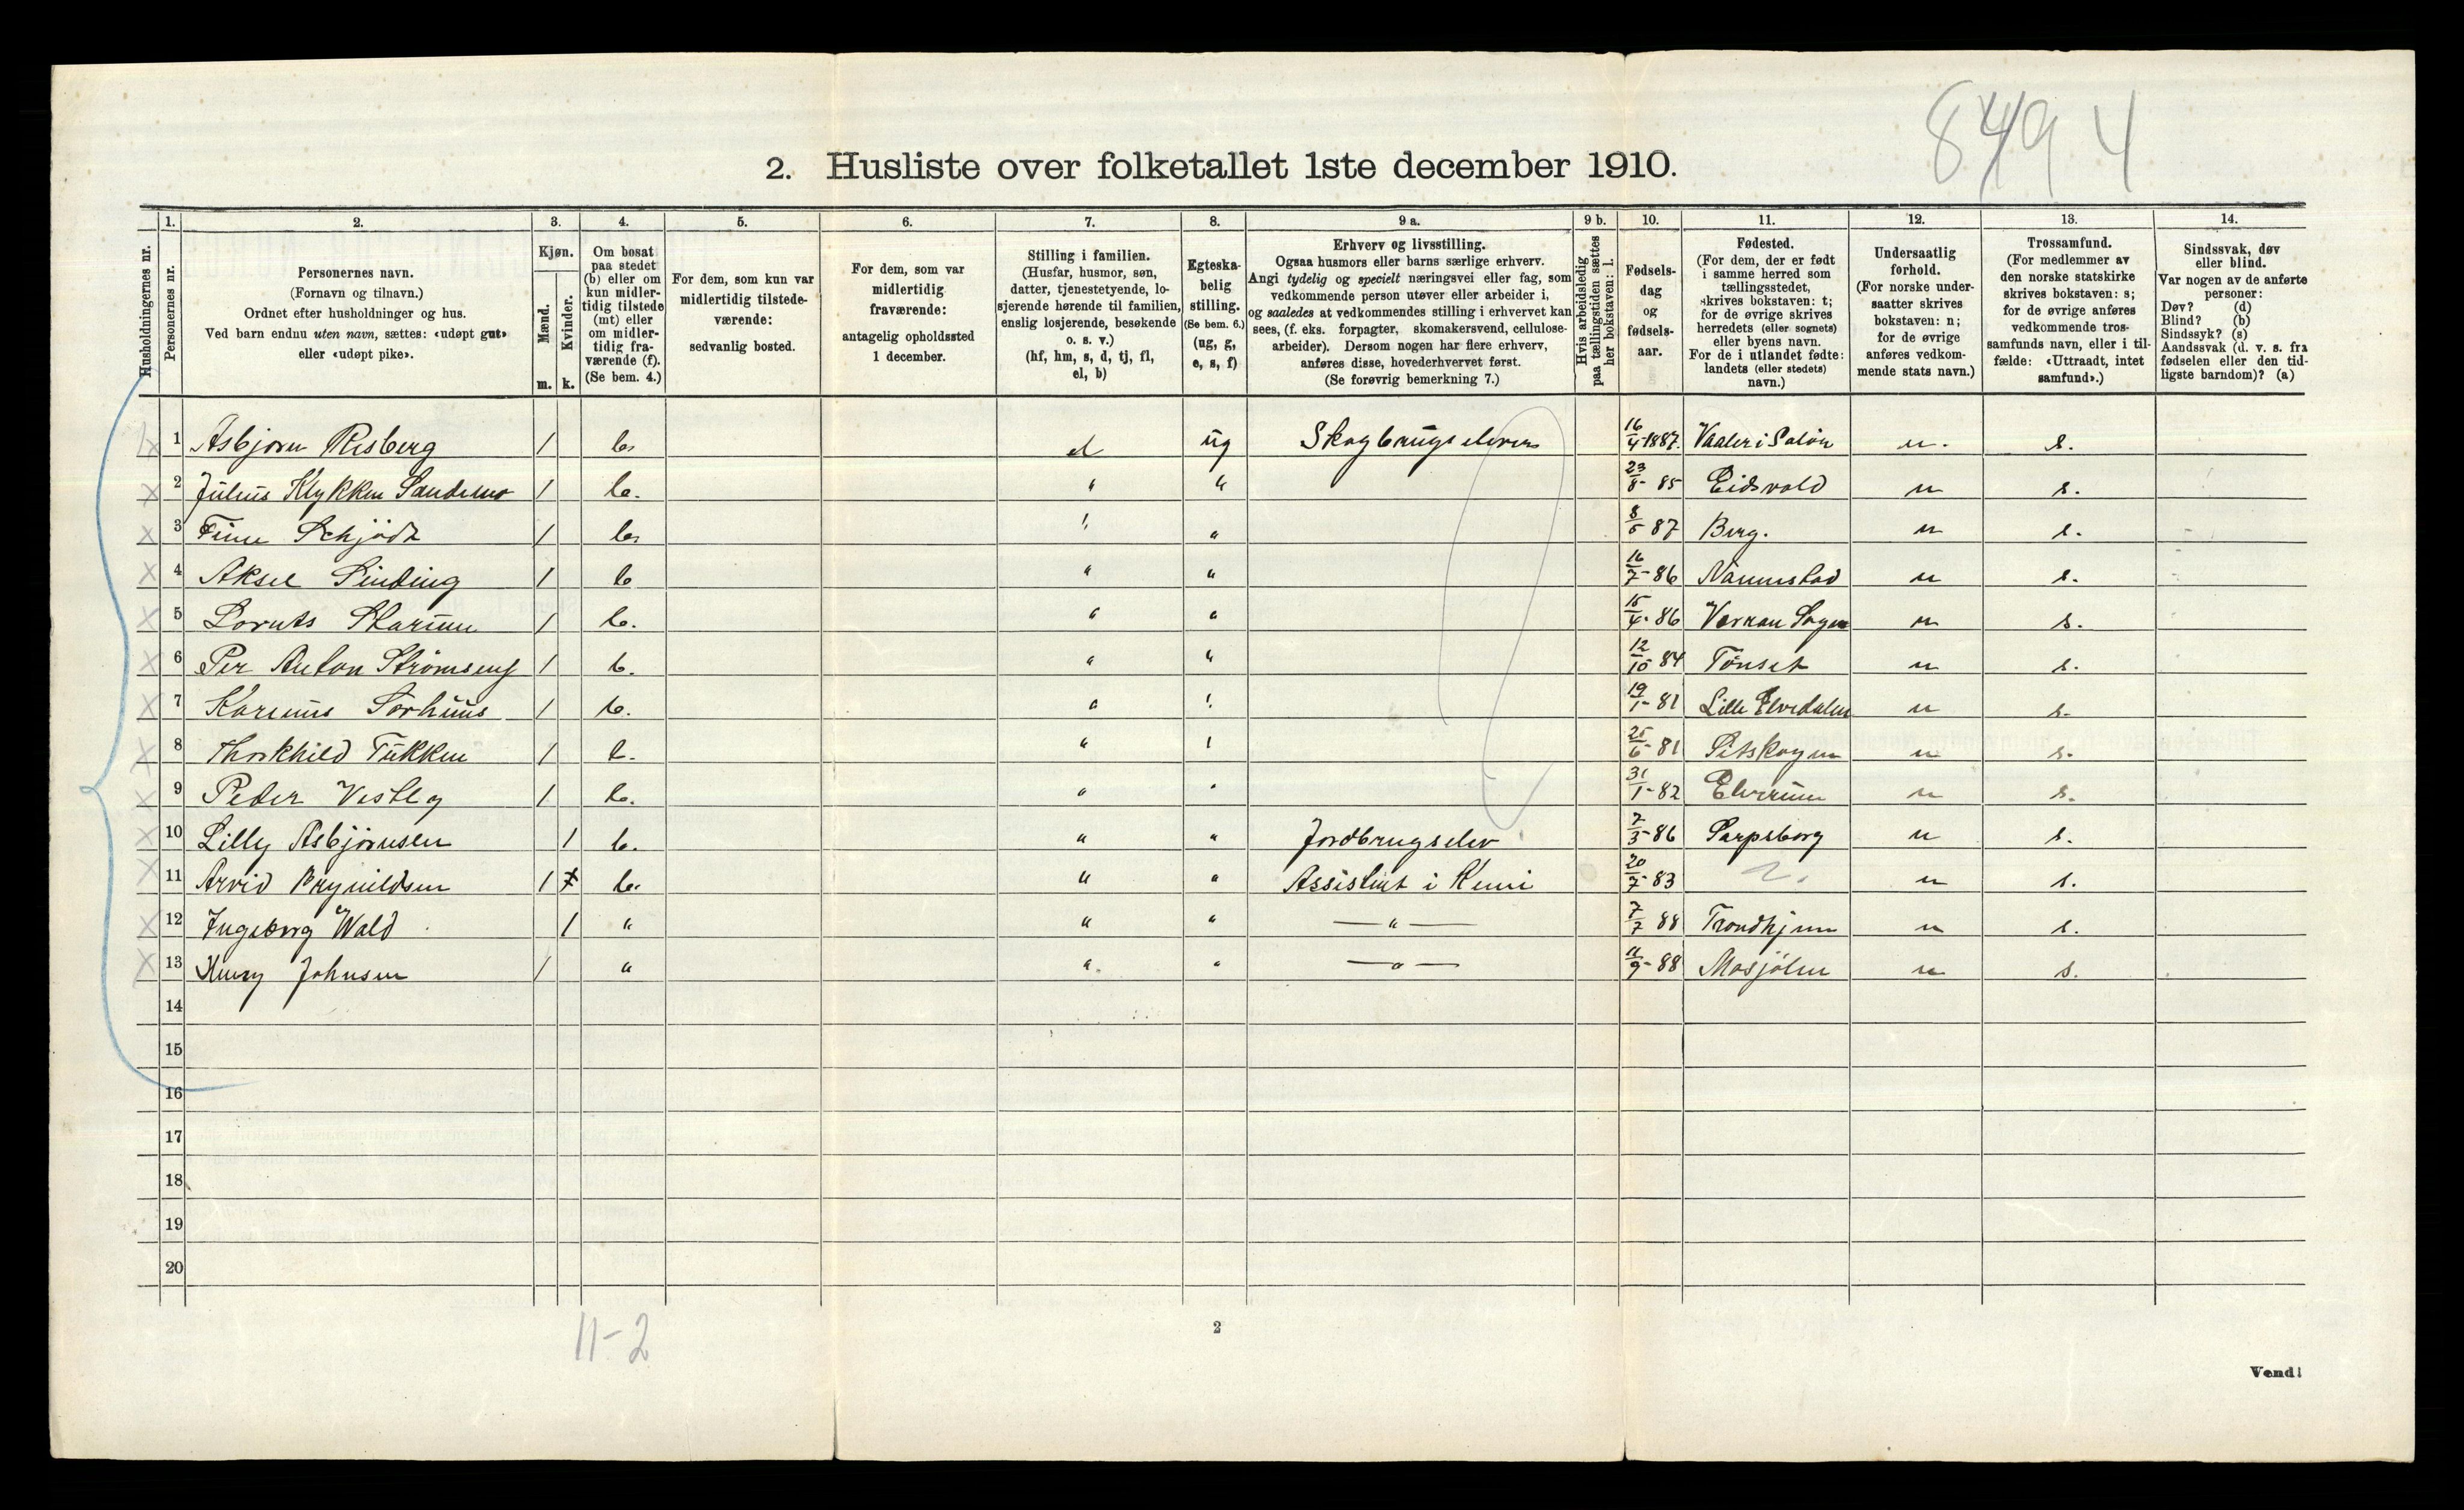 8494
2. Husliste over folketallet 1ste december 1910.
Husholdningernes nr.
1. Personernes nr.
2. Personernes navn. (Fornavn og tilnavn.) Ordnet efter husholdninger og hus. Ved barn endnu uten navn, sættes: «udøpt gut» eller «udøpt pike».
3. Kjøn. Mænd. m. Kvinder. k.
4. Om bosat paa stedet (b) eller om kun midlertidig tilstede (mt) eller om midlertidig fraværende (f). (Se bem. 4.)
5. For dem, som kun var midlertidig tilstedeværende: sedvanlig bosted.
6. For dem, som var midlertidig fraværende: antagelig opholdssted 1 december.
7. Stilling i familien. (Husfar, husmor, søn, datter, tjenestetyende, losjerende hørende til familien, enslig losjerende, besøkende o. s. v.) (hf, hm, s, d, tj, fl, el, b)
8. Egteskabelig stilling. (Se bem. 6.) (ug, g, e, s, f)
9 a. Erhverv og livsstilling. Ogsaa husmors eller barns særlige erhverv. Angi tydelig og specielt næringsvei eller fag, som vedkommende person utøver eller arbeider i, og saaledes at vedkommendes stilling i erhvervet kan sees, (f. eks. forpagter, skomakersvend, cellulosearbeider). Dersom nogen har flere erhverv, anføres disse, hovederhvervet først. (Se forøvrig bemerkning 7.)
9 b. Hvis arbeidsledig paa tællingstiden sættes her bokstaven: l.
10. Fødselsdag og fødselsaar.
11. Fødested. (For dem, der er født i samme herred som tællingsstedet, skrives bokstaven: t; for de øvrige skrives herredets (eller sognets) eller byens navn. For de i utlandet fødte: landets (eller stedets) navn.)
12. Undersaatlig forhold. (For norske undersaatter skrives bokstaven: n; for de øvrige anføres vedkommende stats navn.)
13. Trossamfund. (For medlemmer av den norske statskirke skrives bokstaven: s; for de øvrige anføres vedkommende trossamfunds navn, eller i tilfælde: «Uttraadt, intet samfund».)
14. Sindssvak, døv eller blind. Var nogen av de anførte personer: Døv? (d) Blind? (b) Sindssyk? (s) Aandssvak (d. v. s. fra fødselen eller den tidligste barndom)? (a)
1 Asbjørn Risberg 1 b. el ug Skogbrugseleven 16/4 1887. Vaaler i Solør n. s.
2 Julius Klykken Sandemo 1 b. " " 23/8 - 85 Eidsvold n s.
3 Finn Schjødt 1 b. " " 8/5 87 Berg. n s.
4 Aksel Sinding 1 b " " 16/7 - 86 n s.
5 1 b. " " 15/4 - 86 n s.
6 Per Anton Strømseng 1 b. " " 12/10 84 Tønset n s.
7 Karenus Sørhuus 1 b. " " 19/1 - 81 Lille Elvedalen n s.
8 Thorkhild Tukken 1 b. " " 25/6 - 81 Setskogen n s.
9 Peder Vestby 1 b. " " 31/1 - 82 Elverum n s.
10 Lilly Asbjørnsen 1 b. " " Jordbrugselev 7/3 - 86 Sarpsborg n s.
11 Arvid Brynildsen 1 b. " " Assistent i Kemi 20/7 - 83 n s.
12 Ingeborg Wald 1 " " " — " — 7/7 88 Trondhjem n s.
13 Henry Johnsen 1 " " " — " — 11/9 - 88 Mosjøen n s.
14
15
16
17
18
19
20
11-2
2
Vend!